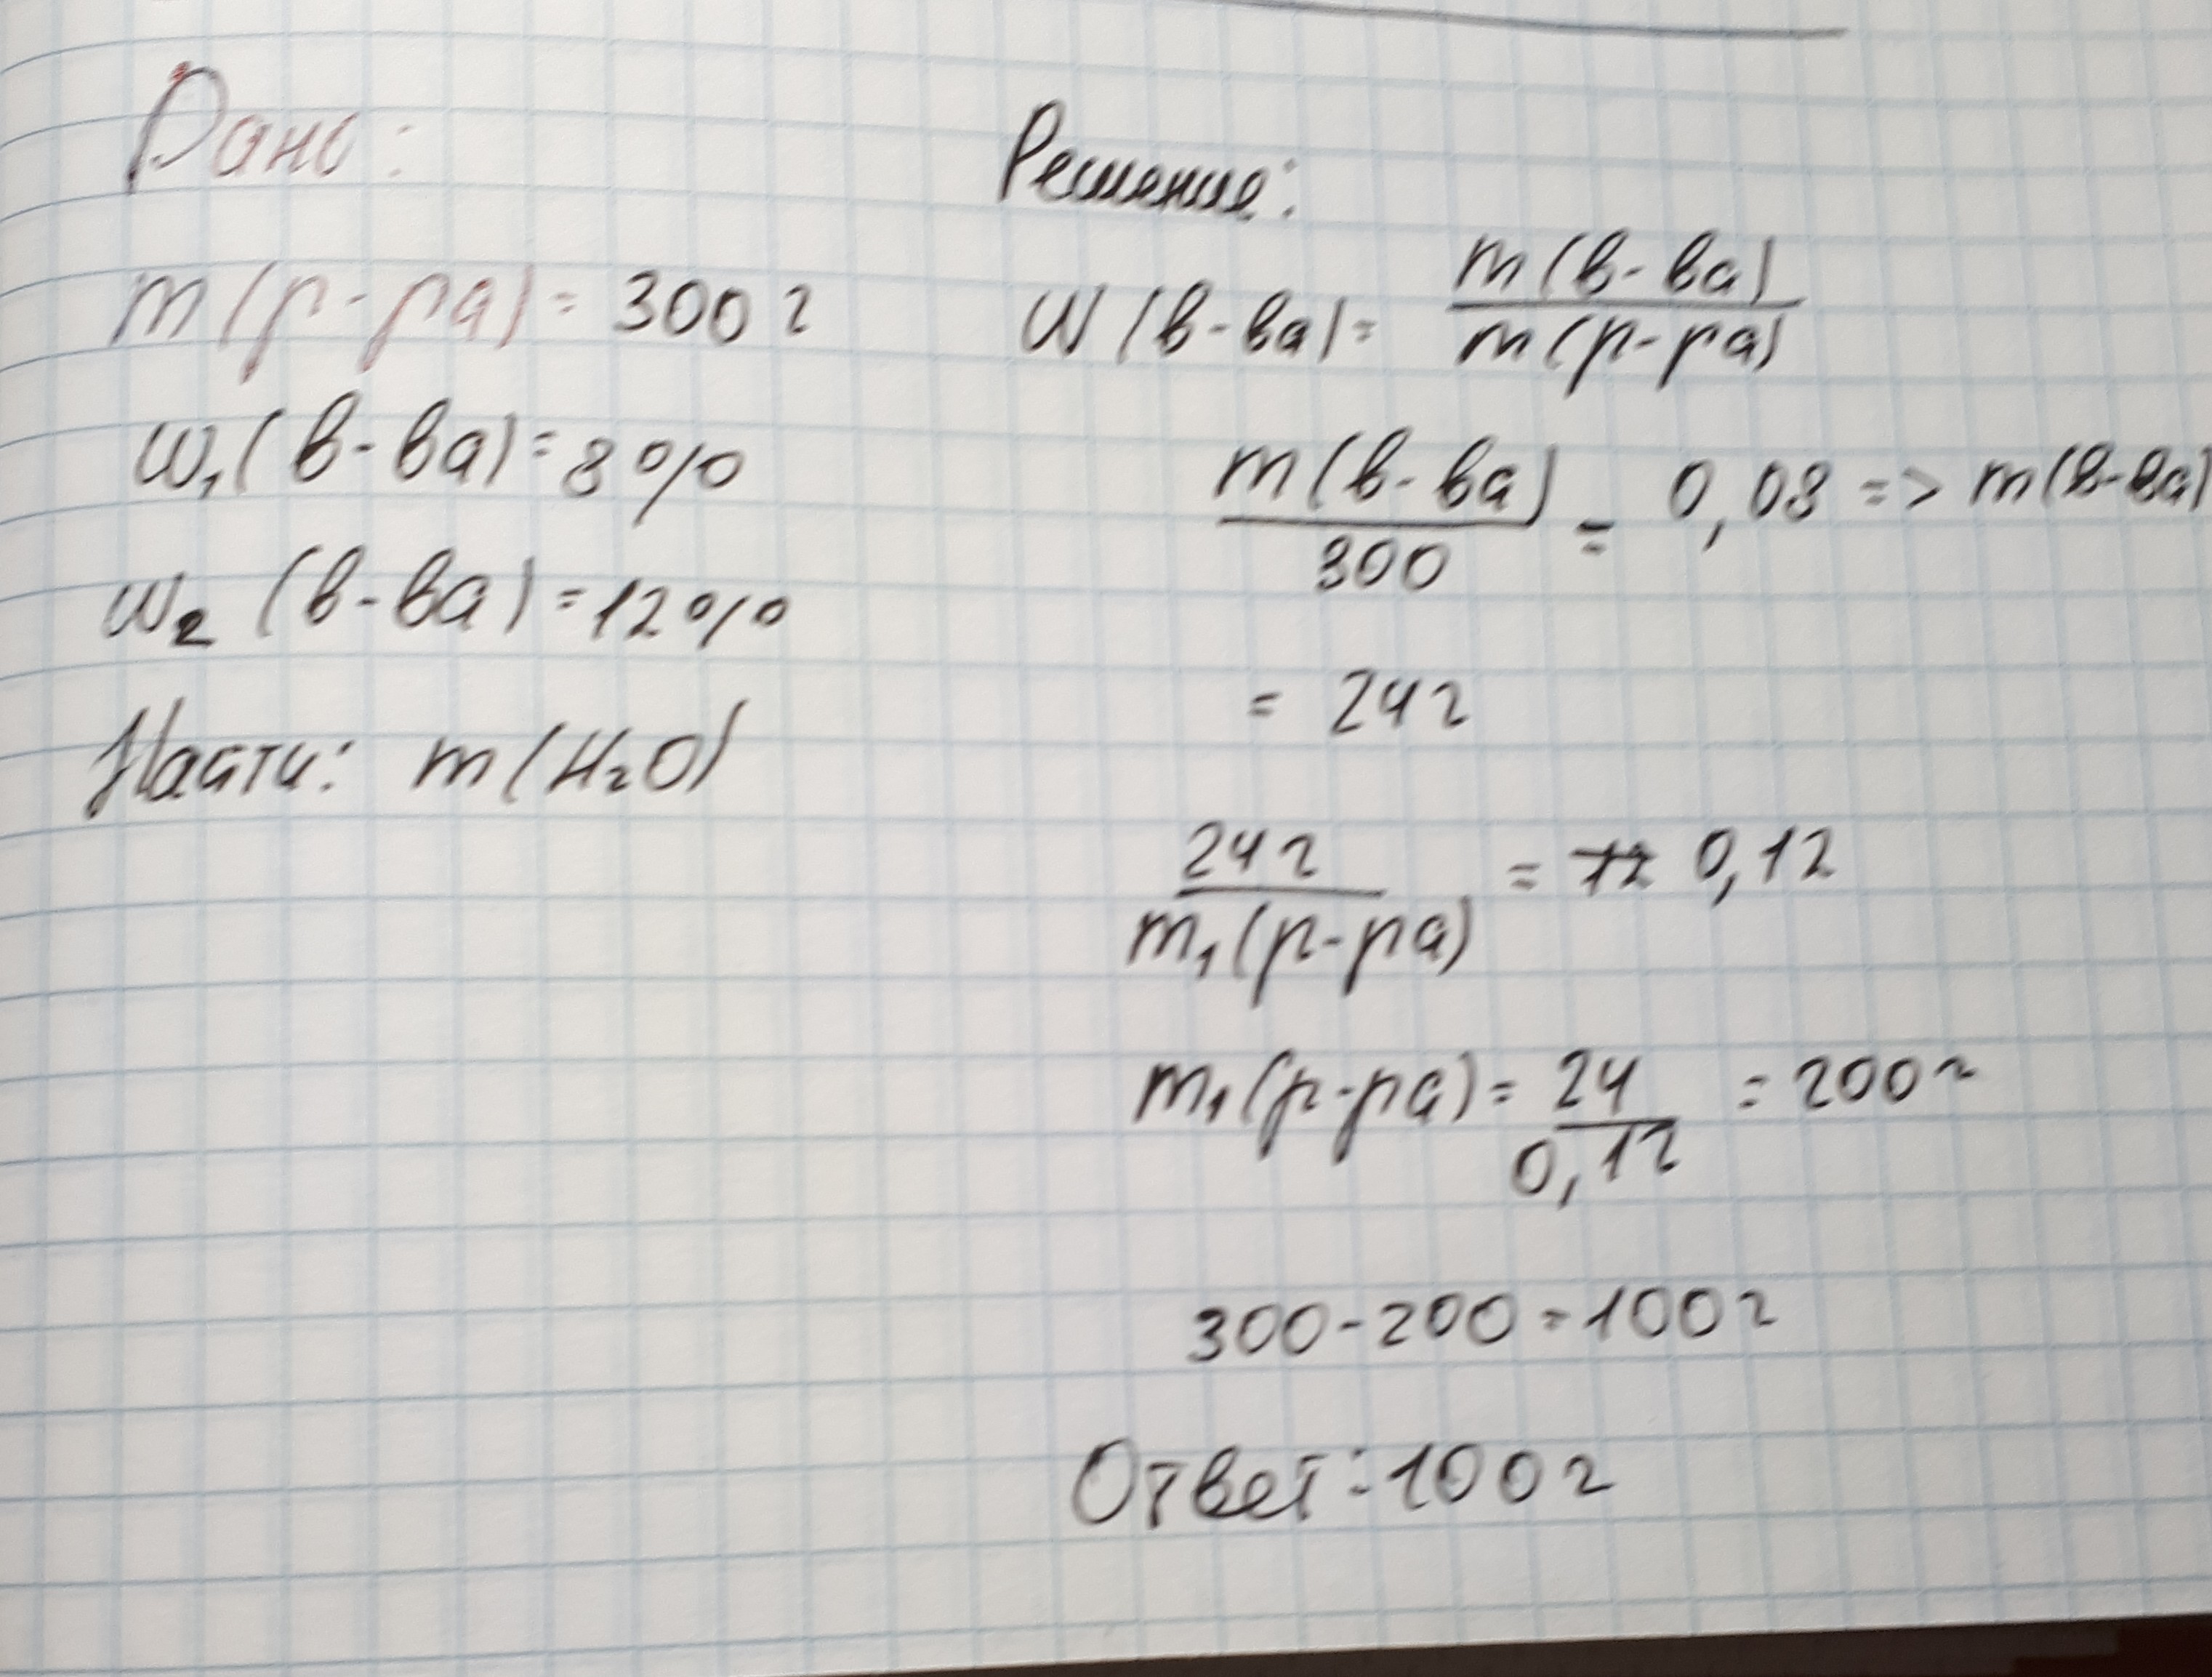 Дано:
m(р-ра) = 300 г
W₁(в-ва) = 8%
W₂ (в-ва) = 12%
Найти: m(H₂O)
Решение:
W(в-ва) = m(в-ва) / m(р-ра)
m(в-ва) / 300 = 0,08 => m(в-ва)
= 24 г
24 г / m₁(р-ра) = 0,12
m₁(р-ра) = 24 / 0,12 = 200 г
300 - 200 = 100 г
Ответ: 100 г